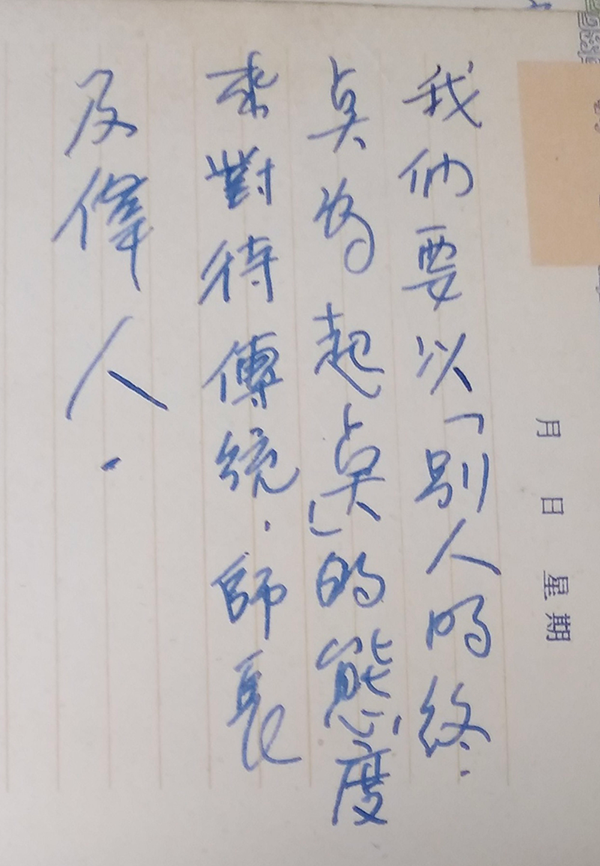 月 日 星期
我們要以「別人的終
点為起点」的態度
來對待傳統．師長
及偉人．